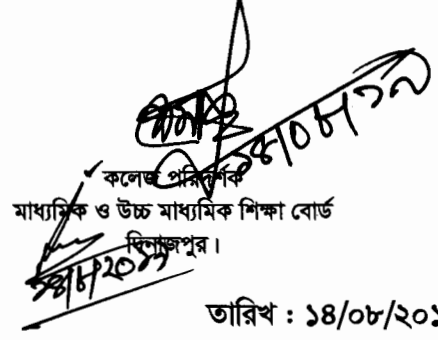 ১৪/০৮/১৯
কলেজ পরিদর্শক
মাধ্যমিক ও উচ্চ মাধ্যমিক শিক্ষা বোর্ড
দিনাজপুর।
তারিখ : ১৪/০৮/২০১